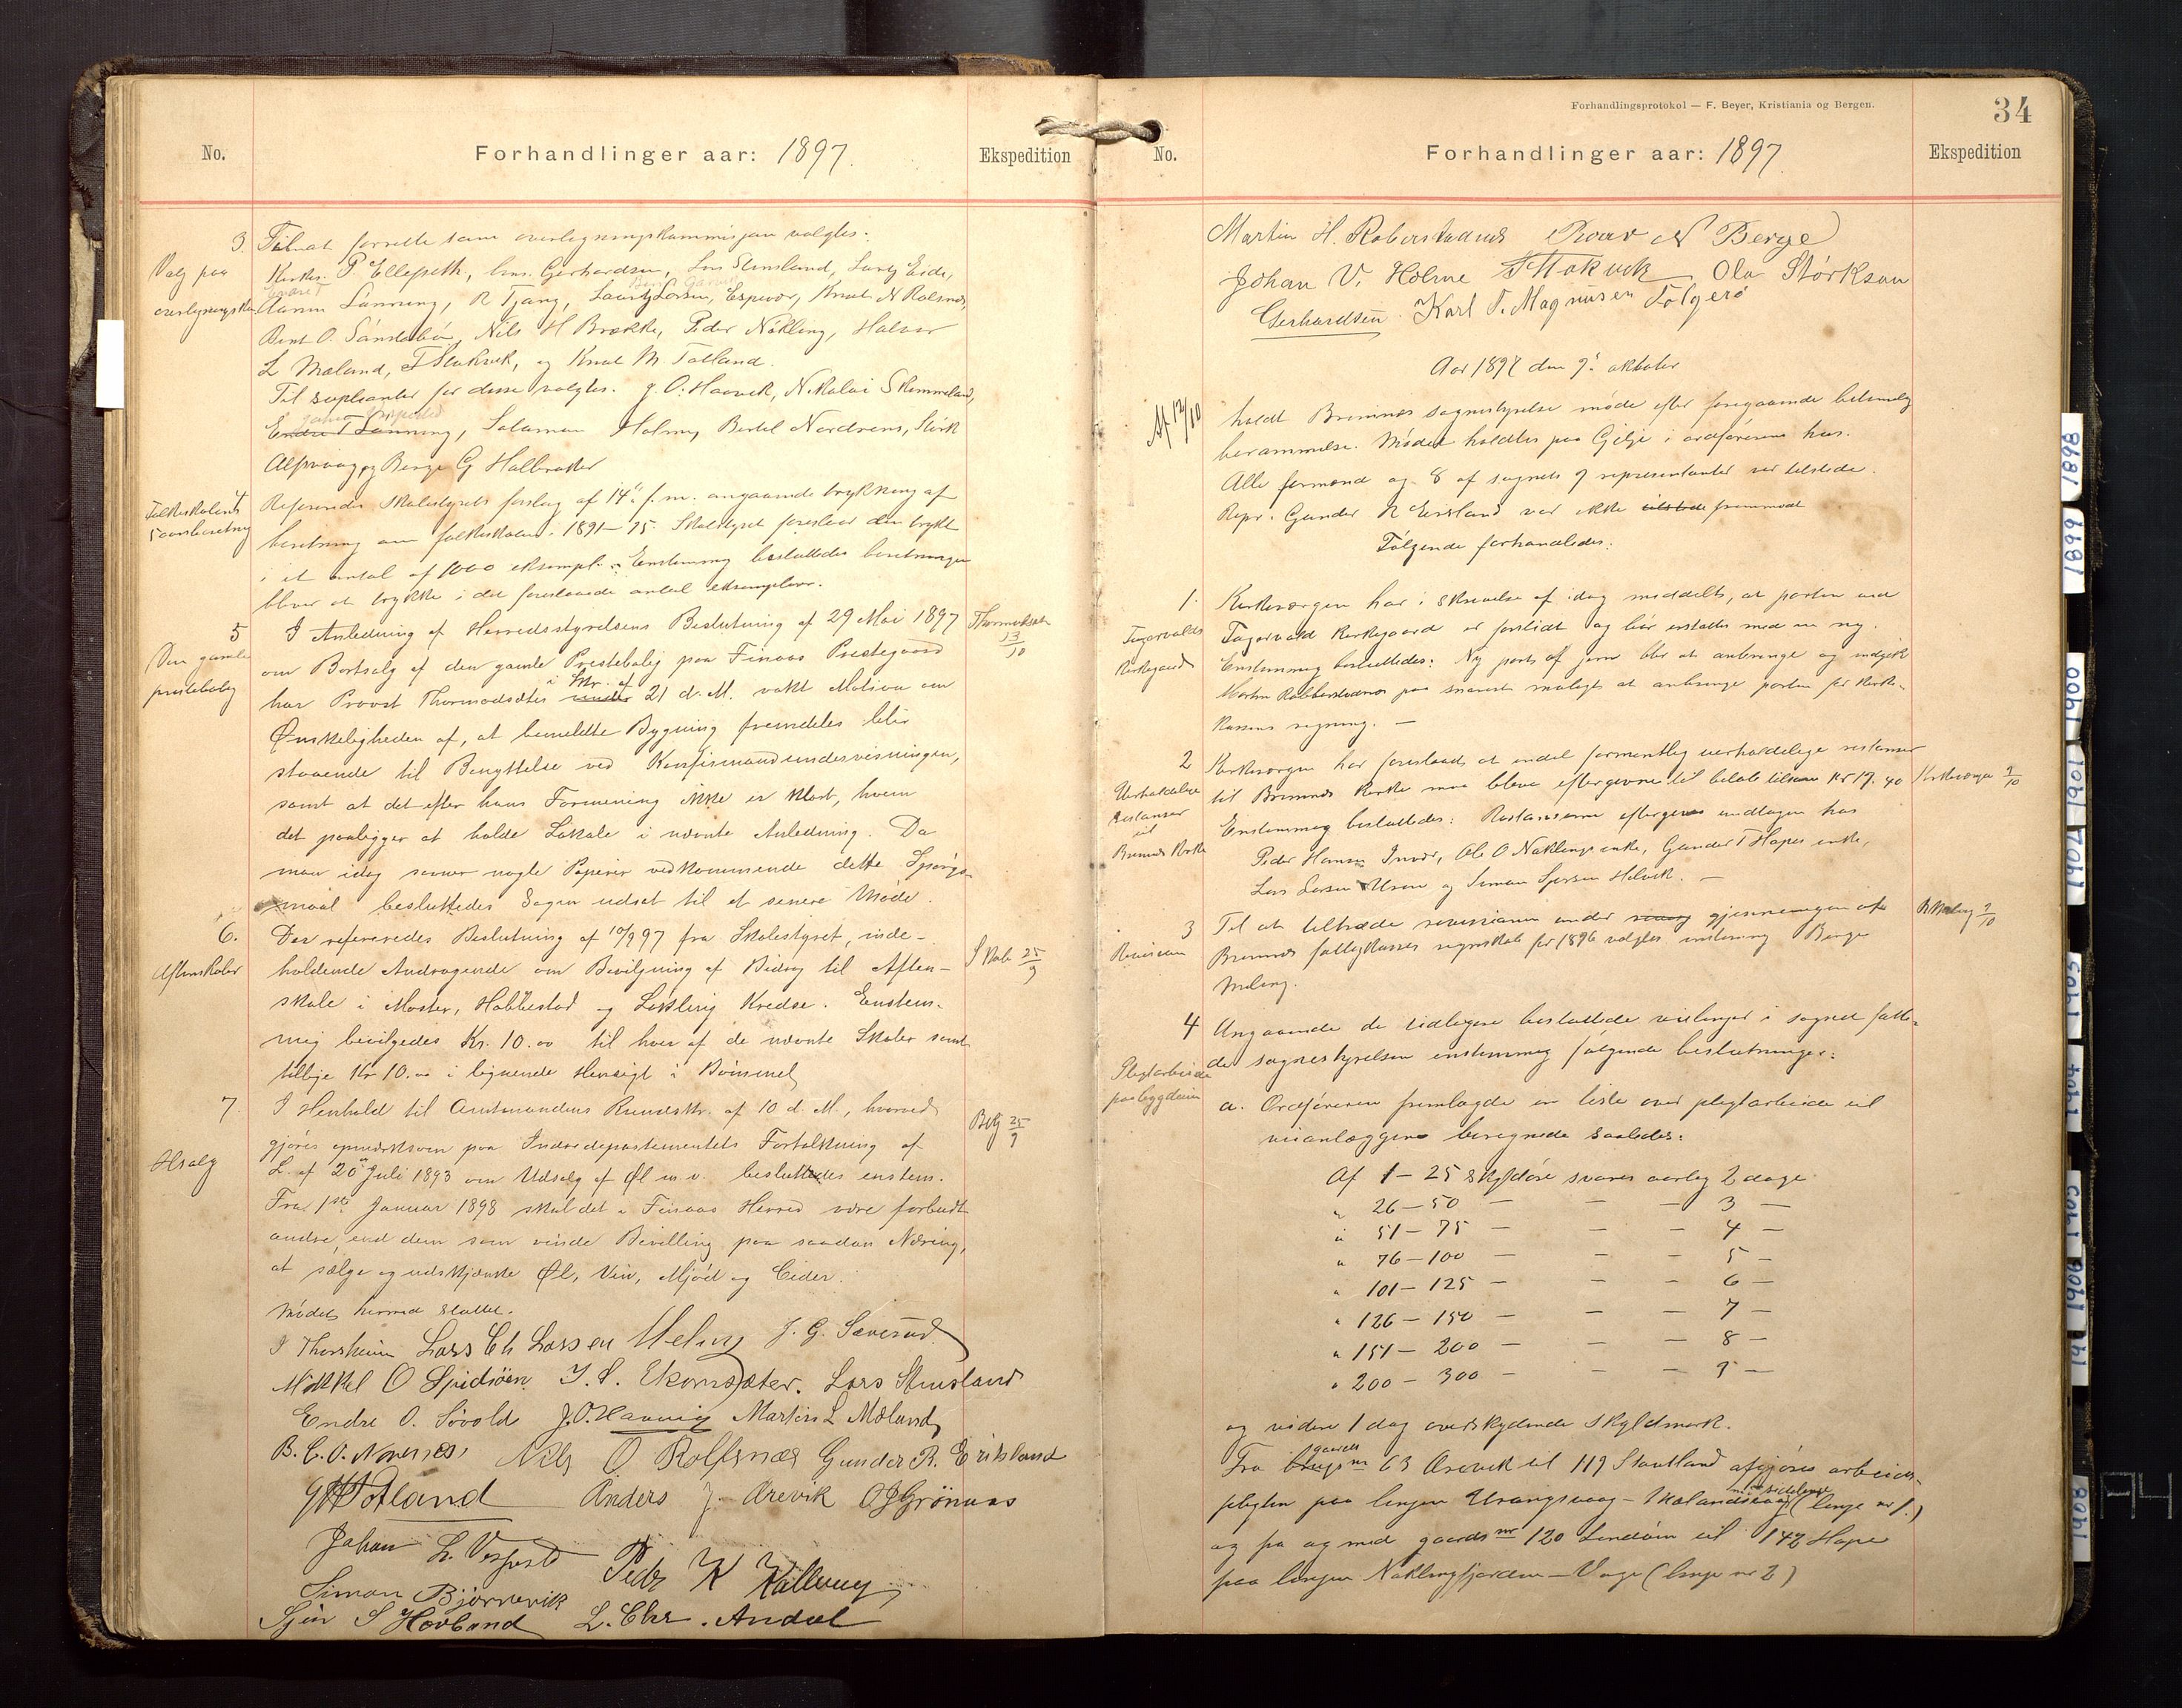 No.
Forhandlinger aar: 1897.
Ekspedition
3.
Valg paa
overligningskom.
Til at forrette som overligningskommisjon valgtes:
Kirkes. P. Ellepeth, Chr. Gerhardsen, Lars Stensland, Lauritz Eide,
Aamun Lønning, R Tjong, Lauritz Larsen, Espevær, Knut N Rolsnes,
Bent O. Sønstabø, Nils H Brække, Peder Nøkling, Halvor
L Mæland, T Stokvik, og Knut M. Totland.
Til suplianter for disse valgtes: J. O. Haavik, Nikolai Skimmeland,
Endre T Lønning, Salamon Holme, Bertel Nordrem, Størk
Alfsvaag og Berge G Halleraker
4
Folkeskolens
5 aarsberetning
Refereredes skolestyrets forslag af 14de f. m. angaaende trykning af
beretning om folkeskolen i 1891–95. Skolestyret foreslaar den trykt
i et antal af 1000 eksempl. – Enstemmig besluttedes beretningen
bliver at trykke i det foreslaaede antal eksemplarer.
5
Den gamle
prestebolig
I Anledning af Herredsstyrelsens Beslutning af 29 Mai 1897
om Bortsalg af den gamle Prestebolig paa Finaas Prestegaard
har Provst Thormodsæter i Skr. af 21 d. M. vakt Motion om
Ønskeligheden af, at bemeldte Bygning fremdeles blir
staaende til Benyttelse ved Konfirmandundervisningen,
samt at det efter hans Formening ikke er klart, hvem
det paaligger at holde Lokale i nævnte Anledning. Da
man idag savner nogle Papirer vedkommende dette Spørgs-
maal besluttedes Sagen udsat til et senere Møde.
Thormodsæter
13/10
6.
Aftenskoler
Der refereredes Beslutning af 10/9 97 fra Skolestyret, inde-
holdende Andragende om Bevilgning af Bidrag til Aften-
skole i Moster, Habbestad og Løkling Kredse. Enstem-
mig bevilgedes Kr. 10.00 til hver af de nævnte Skoler samt
tillige Kr 10.00 i lignende Hensigt i Bømmel
Skole 25/9
7.
Ølsalg
I Henhold til Amtmandens Rundskr. af 10 d. M., hvorved
gjøres opmærksom paa Indredepartementets Fortolkning af
L. af 20de Juli 1893 om Udsalg af Øl m. v. besluttedes enstem.
Fra 1ste Januar 1898 skal det i Finaas Herred være forbudt
andre, end dem som vinde Bevilling paa saadan Næring,
at sælge og udskjænke Øl, Vin, Mjød og Cider.
Mødet hermed sluttet.
25/9
I Thorsheim Lars Ch Larssen J. G. Sævesrud
Mikkel O Spidsøen J. S. Ekornsæter. Lars Stensland
Endre O. Søvold J. O. Haavig Martin L Mæland
B. C. O. Nornes Nils O Rolfsnæs Gunder R. Eriksland
Totland Anders J. Arevik O J Grønnas
Johan L. Vespestd Peder K Køkling
Simon Bjørnevik
Sjur S Hovland L. Chr. Andal
Forhandlingsprotokol — F. Beyer, Kristiania og Bergen.
34
No.
Forhandlinger aar: 1897
Ekspedition
Martin H. Roberstadnes Roar N Berge
Johan V. Holme T Stokvik Ola Størksøn
Gerhardsen. Karl T. Magnusen Følgerø
Aar 1897 den 9de oktober
Af 12/10
holdt Bremnes sognestyrelse møde efter foregaaende belovlig
berammelse. Mødet holdtes paa Gilje i ordførerens hus.
Alle formænd og 8 af sognets 9 representanter var tilstede.
Repr. Gunder R Eriksland var ikke tilstede fremmødt
Følgende forhandledes:
1.
Fagervalds
Kirkegaard
Kirkeværgen har i skrivelse af idag meddelt, at porten ved
Fagervald Kirkegaard er forslidt og bør erstattes med en ny.
Enstemmig besluttedes: Ny port af jern blir at anbringe og indgik
Martin Robberstadnes paa snarest muligt at anbringe porten for Kirke-
kassens regning. —
2
Uerholdelige
restanser
til
Bremnes Kirke
Kirkeværgen har foreslaaet at endel formentlig uerholdelige restanser
til Bremnes Kirke maa bleve eftergivne til beløb tilsam Kr 19.40
Enstemmig besluttedes: Restanserne eftergives undtagen hos
Peder Hansen Invær, Ole O Nøklings enke, Gunder T Hopes enke,
Lars Larsen Uren og Simon Sjursen Helvik. —
Kirkeværgen 9/10
3
Revision
Til at tiltræde revisionen under gjennemgaaen af
Bremnes fattigkasses regnskab for 1896 valgtes enstemmig Berge
Meling.
9/10
4
Pligtarbeide
paa bygdeveie
Angaaende de tidligere besluttede veilinjer i sognet fatte-
de sognestyrelsen enstemmig følgende beslutninger:
a. Ordføreren fremlagde en liste over pligtarbeide til
veianlæggene beregnede saaledes:
Af 1 – 25 skyldøre svares aarlig 2 dage
" 26 – 50 — — — 3 —
" 51 – 75 — — — 4 —
" 76 – 100 — — — 5 —
" 101 – 125 — — — 6 —
" 126 – 150 — — — 7 —
" 151 – 200 — — — 8 —
" 200 – 300 — — — 9 —
og videre 1 dag overskydende skyldmark.
Fra brugs gaards nr 63 Arevik til 119 Stautland afgjøres arbeids-
pligten paa linjen Urangsvaag – Mælandsvaag (linje nr 1.)
og fra og med gaards nr 120 Lindøen til 142 Hope
paa linjen Nøklingfjorden – Vage (linje nr 2)
1898
1899
1900
1901
1902
1903
1904
1905
1906
1908